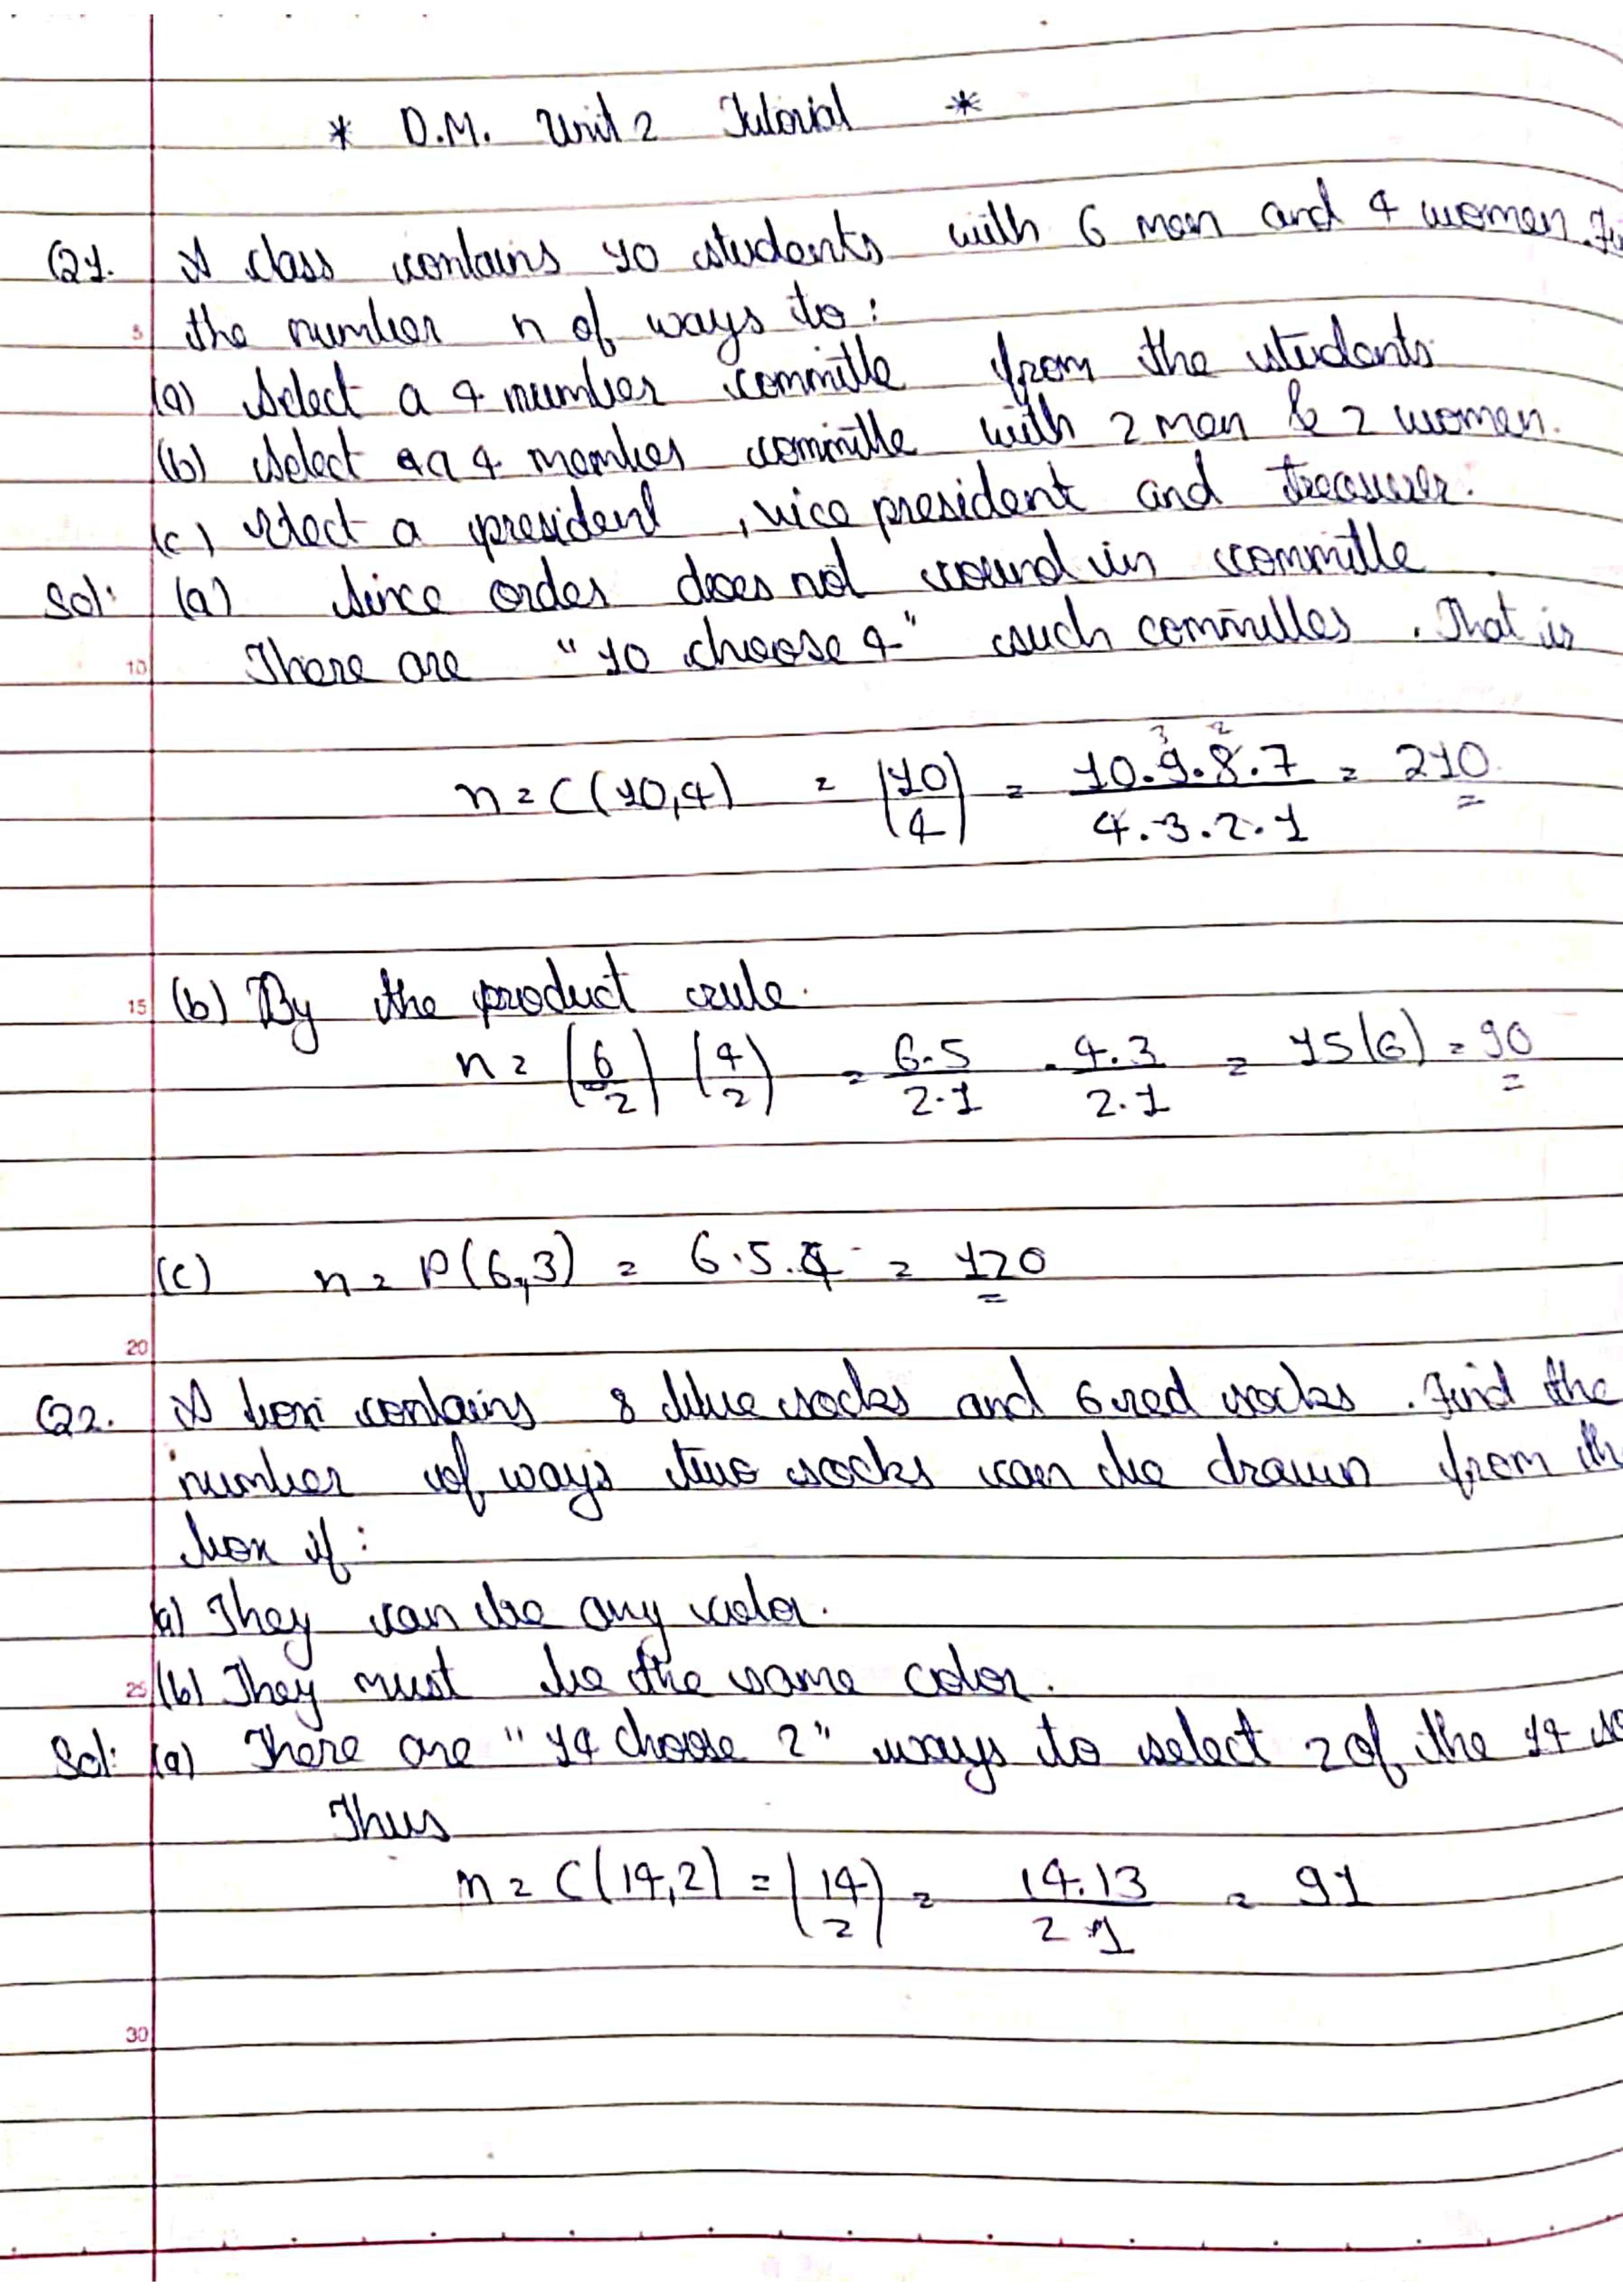 * D.M. Unit 2 Tutorial *
Q1. A class contains 10 students with 6 men and 4 women.
5 the number n of ways to:
(a) Select a 4 number committe from the students
(b) select a 4 member committe with 2 men & 2 women.
(c) Elect a president , vice president and treasurer.
Sol: (a) Since order does not in committe
10 There are "10 choose 4" such committes . That is
n = C(10,4) = (10/4) = 10.9.8.7 / 4.3.2.1 = 210
3 2
15 (b) By the product rule.
n = (6/2) (4/2) = 6.5 / 2.1 . 4.3 / 2.1 = 15(6) = 90
(c) n = P(6,3) = 6.5.4 = 120
20
Q2. A box contains 8 blue socks and 6 red socks . Find the
number of ways two socks can be drawn from
box if:
(a) They can be any color.
25 (b) They must be the same color.
Sol: (a) There are "14 choose 2" ways to select 2 of the 14
Thus
n = C(14,2) = (14/2) = 14.13 / 2.1 = 91
30